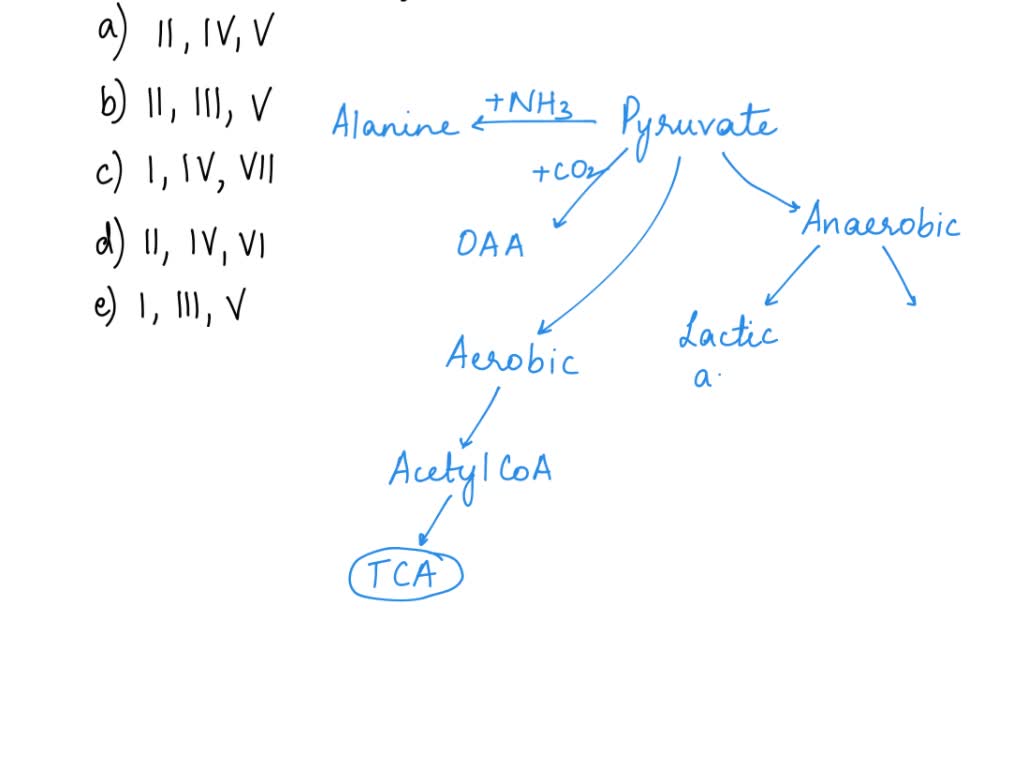 a) II, IV, V
b) II, III, V
c) I, IV, VII
d) II, IV, VI
e) I, III, V
Alanine +NH3 Pyruvate
+CO2
OAA
Anaerobic
Aerobic
Lactic
a.
Acetyl CoA
TCA